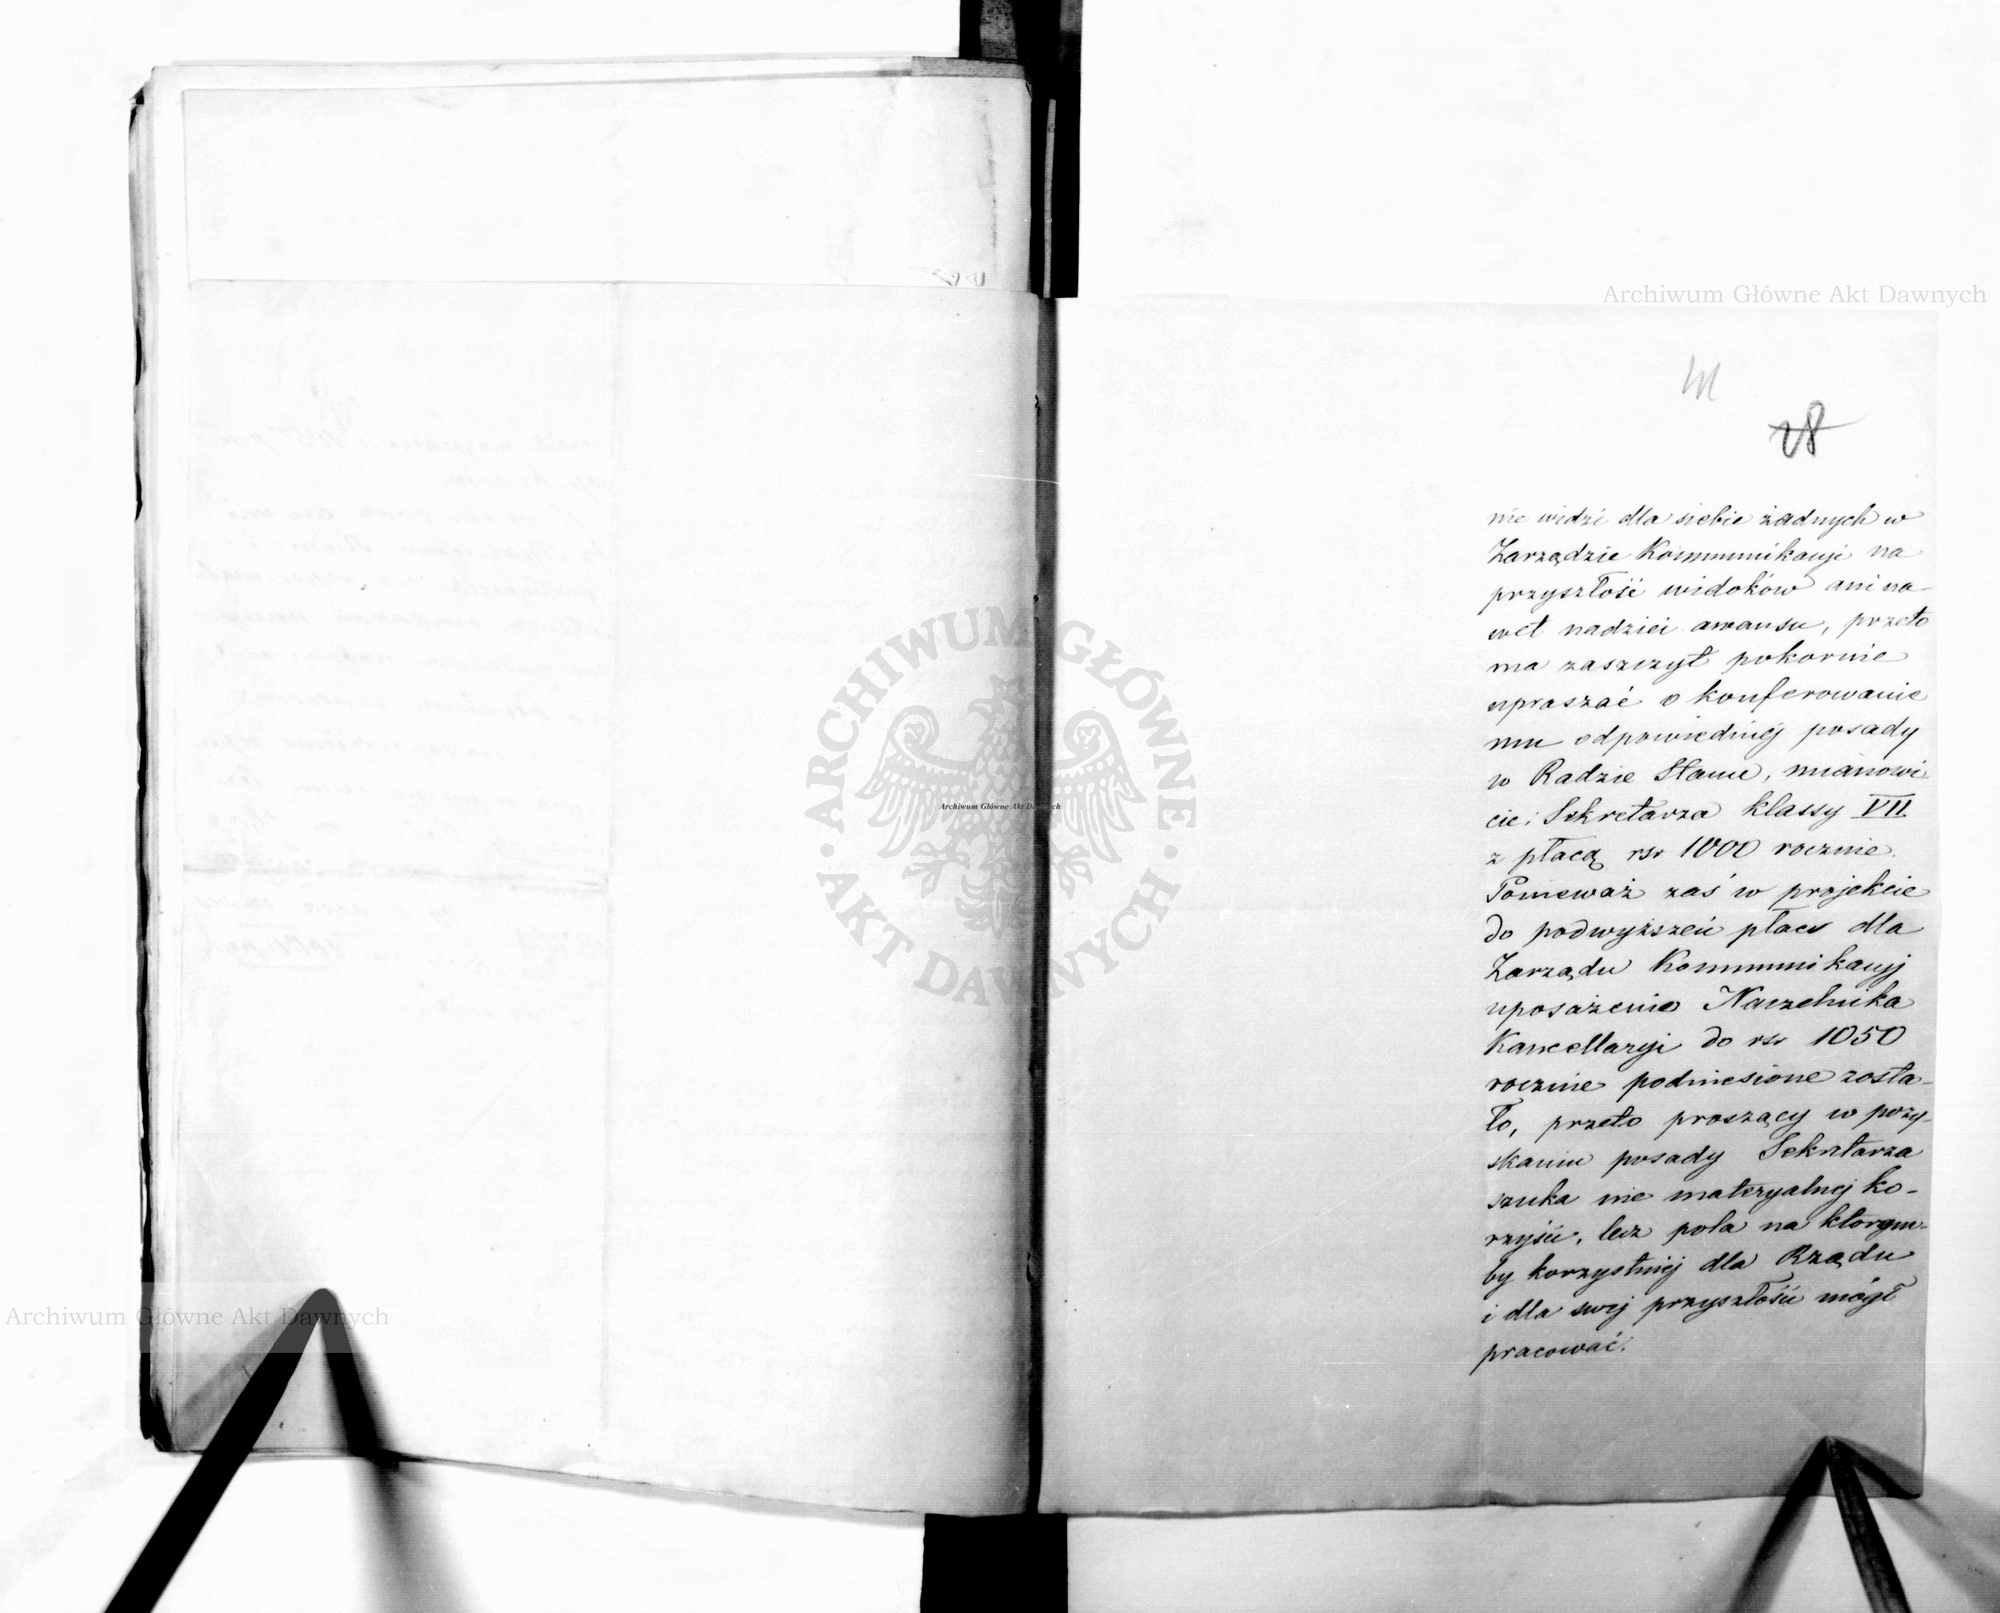 Archiwum Główne Akt Dawnych
28
nie widzi dla siebie żadnych w
Zarządzie Kommunikacyi na
przyszłość widoków ani na-
wet nadziei awansu, przeto
ma zaszczyt pokornie
upraszać o konferowanie
mu odpowiedniej posady
w Radzie Stanu, mianowi-
cie: Sekretarza klassy VII
z płacą rsr 1000 rocznie.
Ponieważ zaś w projekcie
do podwyższeń płacy dla
Zarządu Kommunikacyj
uposażenie Naczelnika
Kancellaryi do rsr 1050
rocznie podniesione zosta-
ło, przeto proszący w pozy-
skaniu posady Sekretarza
szuka nie materyalnej ko-
rzyści, lecz pola na którym-
by korzystniej dla Rządu
i dla swej przyszłości mógł
pracować.
ARCHIWUM GŁÓWNE
AKT DAWNYCH
Archiwum Główne Akt Dawnych
Archiwum Główne Akt Dawnych